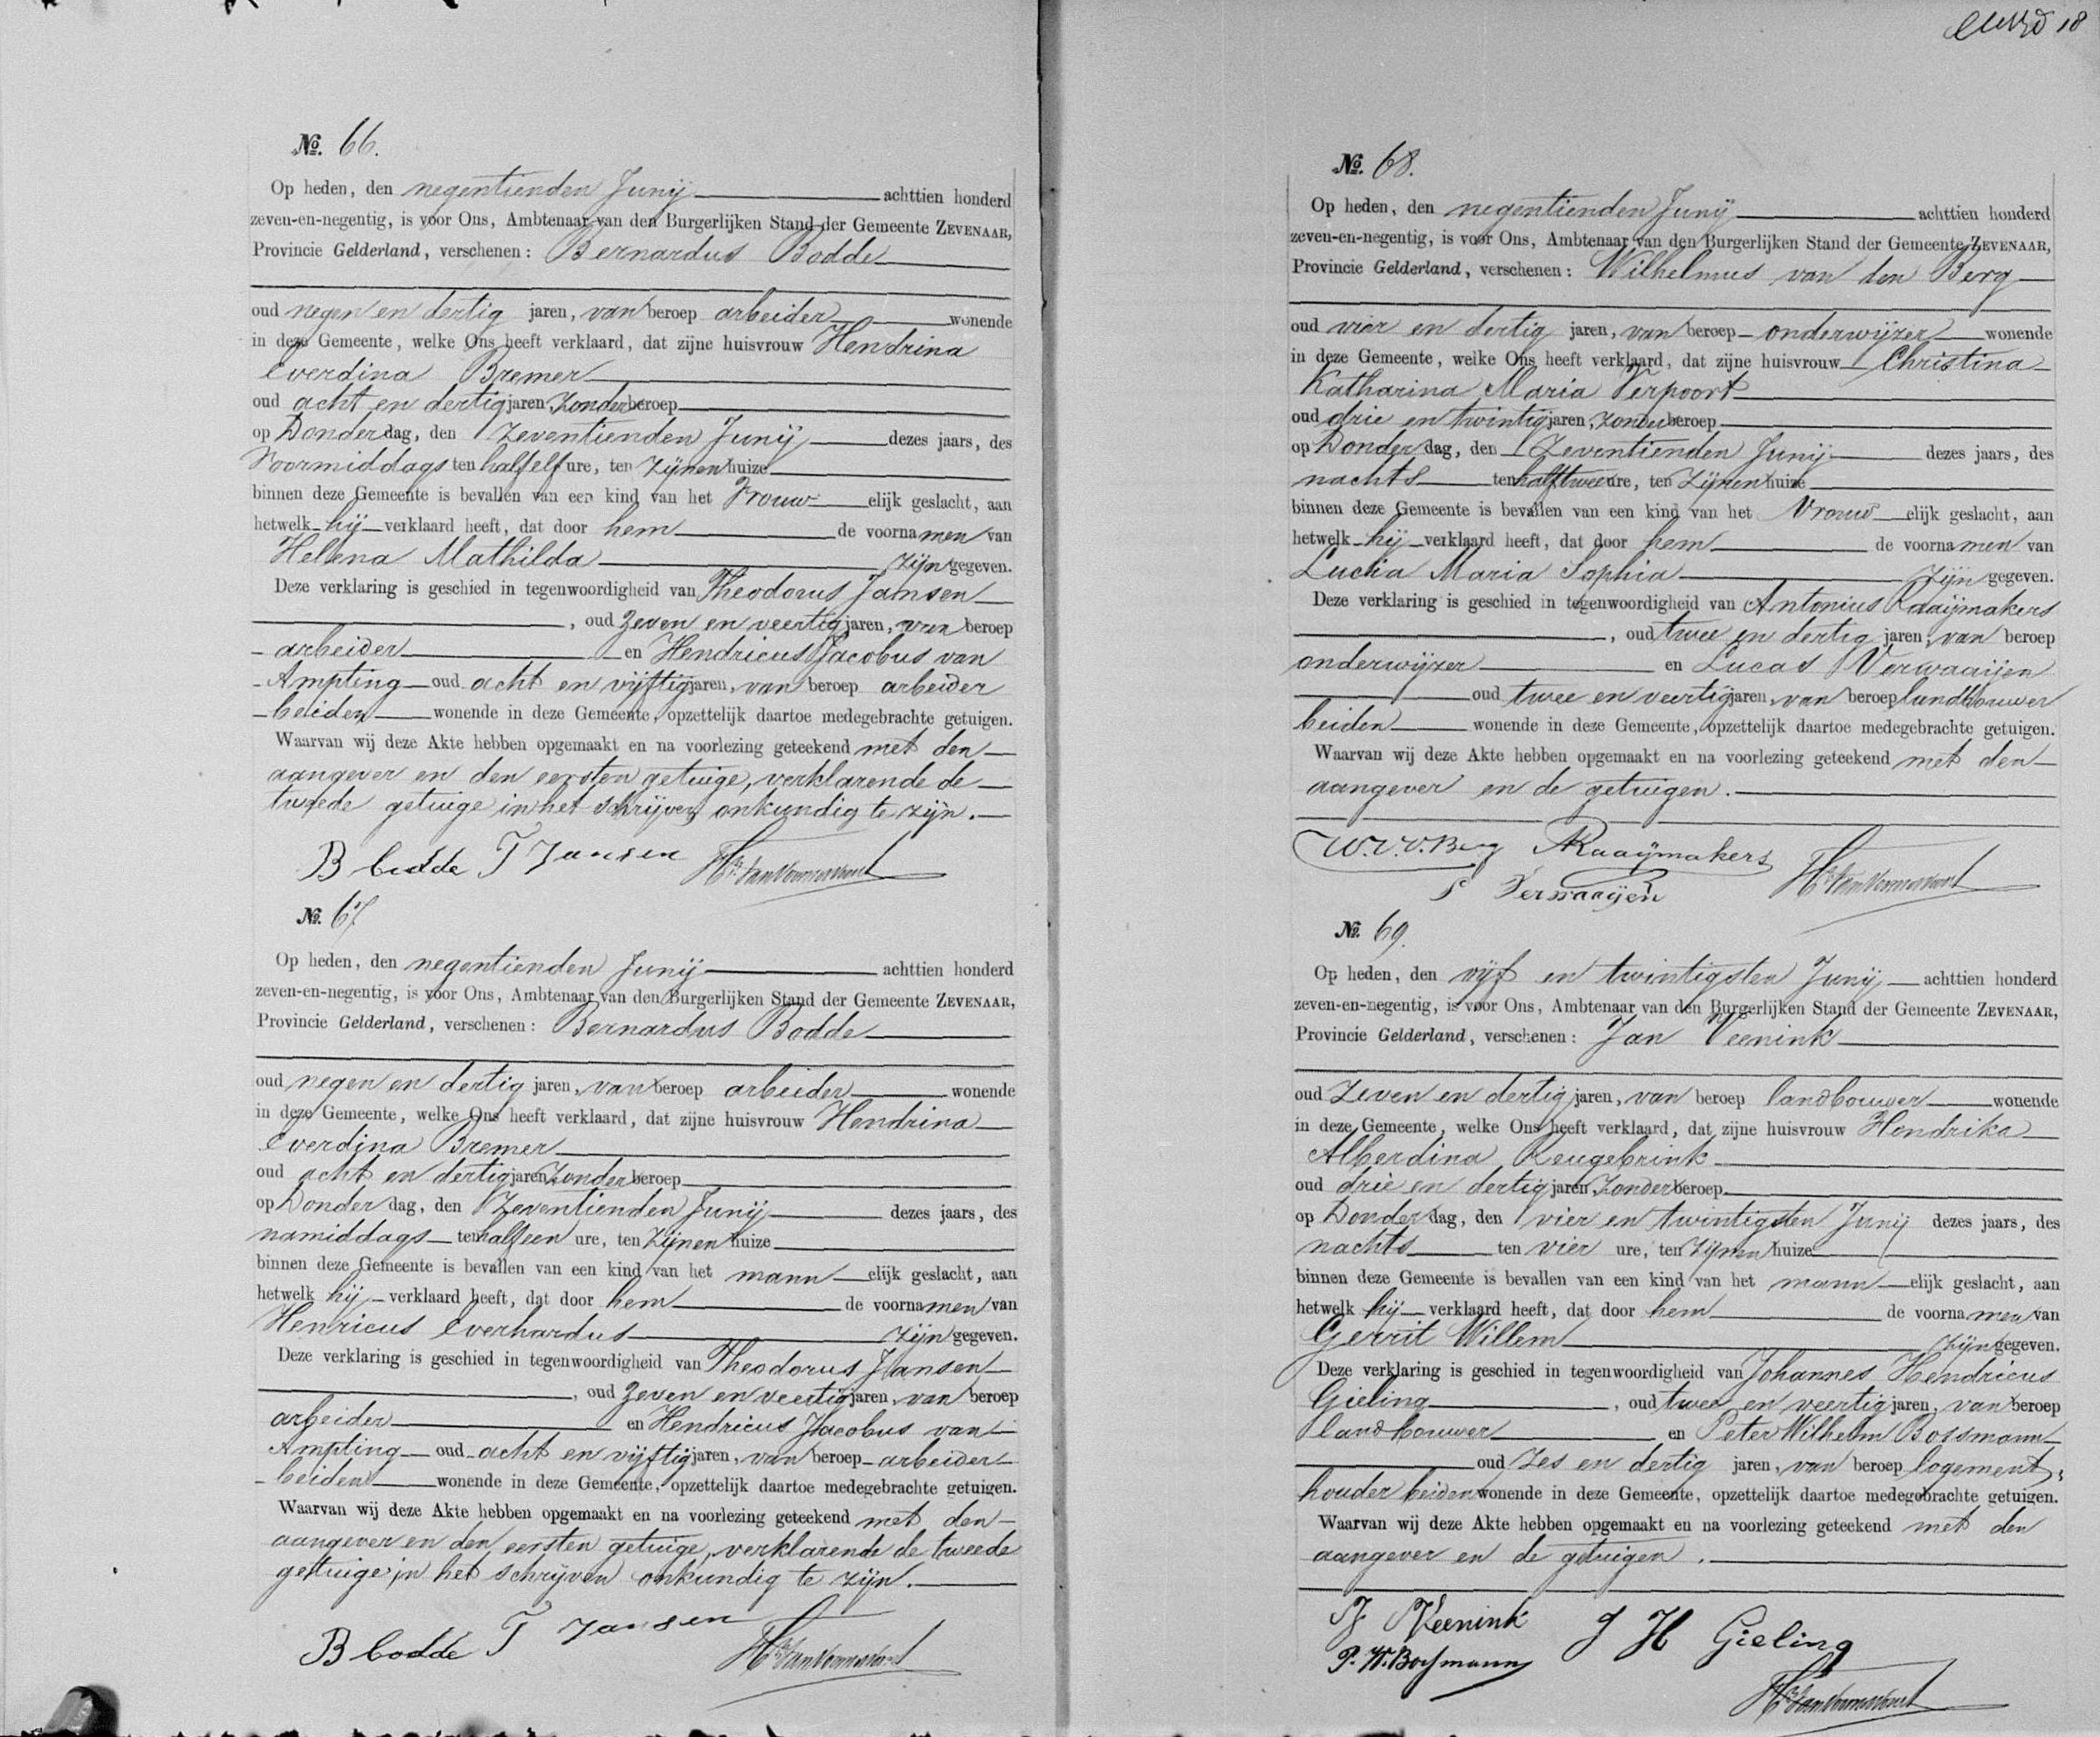 18
№. 66.
Op heden, den negentienden Junij achttien honderd
zeven-en-negentig, is voor Ons, Ambtenaar van den Burgerlijken Stand der Gemeente ZEVENAAR,
Provincie Gelderland, verschenen: Bernardus Bodde
oud negen en dertig jaren, van beroep arbeider wonende
in deze Gemeente, welke Ons heeft verklaard, dat zijne huisvrouw Hendrina
Everdina Bremer
oud acht en dertig jaren, zonder beroep
op Donderdag, den zeventienden Junij dezes jaars, des
Voormiddags ten half elf ure, ten zijnen huize
binnen deze Gemeente is bevallen van een kind van het Vrouwelijk geslacht, aan
hetwelk hij verklaard heeft, dat door hem de voornamen van
Helena Mathilda zijn gegeven.
Deze verklaring is geschied in tegenwoordigheid van Theodorus Jansen
, oud zeven en veertig jaren, van beroep
arbeider en Hendricus Jacobus van
Ampting oud acht en vijftig jaren, van beroep arbeider
beiden wonende in deze Gemeente, opzettelijk daartoe medegebrachte getuigen.
Waarvan wij deze Akte hebben opgemaakt en na voorlezing geteekend met den
aangever en den eersten getuige, verklarende de
tweede getuige in het schrijven onkundig te zijn.
B bodde T Jansen
№. 67
Op heden, den negentienden Junij achttien honderd
zeven-en-negentig, is voor Ons, Ambtenaar van den Burgerlijken Stand der Gemeente ZEVENAAR,
Provincie Gelderland, verschenen: Bernardus Bodde
oud negen en dertig jaren, van beroep arbeider wonende
in deze Gemeente, welke Ons heeft verklaard, dat zijne huisvrouw Hendrina
Everdina Bremer
oud acht en dertig jaren zonder beroep
op Donderdag, den zeventienden Junij dezes jaars, des
namiddags ten half een ure, ten zijnen huize
binnen deze Gemeente is bevallen van een kind van het mannelijk geslacht, aan
hetwelk hij verklaard heeft, dat door hem de voornamen van
Henricus Everhardus zijn gegeven.
Deze verklaring is geschied in tegenwoordigheid van Theodorus Jansen
, oud zeven en veertig jaren, van beroep
arbeider en Hendricus Jacobus van
Ampting oud acht en vijftig jaren, van beroep arbeider
beiden wonende in deze Gemeente, opzettelijk daartoe medegebrachte getuigen.
Waarvan wij deze Akte hebben opgemaakt en na voorlezing geteekend met den
aangever en den eersten getuige, verklarende de tweede
getuige in het schrijven onkundig te zijn.
B bodde T Jansen
№. 68.
Op heden, den negentienden Junij achttien honderd
zeven-en-negentig, is voor Ons, Ambtenaar van den Burgerlijken Stand der Gemeente ZEVENAAR,
Provincie Gelderland, verschenen: Wilhelmus van den Berg
oud vier en dertig jaren, van beroep onderwijzer wonende
in deze Gemeente, welke Ons heeft verklaard, dat zijne huisvrouw Christina
Katharina Maria Verpoort
oud drie en twintig jaren, zonder beroep
op Donderdag, den zeventienden Junij dezes jaars, des
nachts ten half twee ure, ten zijnen huize
binnen deze Gemeente is bevallen van een kind van het Vrouwelijk geslacht, aan
hetwelk hij verklaard heeft, dat door hem de voornamen van
Lucia Maria Sophia zijn gegeven.
Deze verklaring is geschied in tegenwoordigheid van Antonius Raaijmakers
, oud twee en dertig jaren, van beroep
onderwijzer en Lucas Verwaaijen
oud twee en veertig jaren, van beroep landbouwer
beiden wonende in deze Gemeente, opzettelijk daartoe medegebrachte getuigen.
Waarvan wij deze Akte hebben opgemaakt en na voorlezing geteekend met den
aangever en de getuigen.
W. v. d. Berg Raaijmakers
Verwaaijen
№. 69.
Op heden, den vijf en twintigsten Junij achttien honderd
zeven-en-negentig, is voor Ons, Ambtenaar van den Burgerlijken Stand der Gemeente ZEVENAAR,
Provincie Gelderland, verschenen: Jan Veenink
oud zeven en dertig jaren, van beroep landbouwer wonende
in deze Gemeente, welke Ons heeft verklaard, dat zijne huisvrouw Hendrika
Alberdina Reugebrink
oud drie en dertig jaren, zonder beroep
op Donderdag, den vier en twintigsten Junij dezes jaars, des
nachts ten vier ure, ten zijnen huize
binnen deze Gemeente is bevallen van een kind van het mannelijk geslacht, aan
hetwelk hij verklaard heeft, dat door hem de voornamen van
Gerrit Willem zijn gegeven.
Deze verklaring is geschied in tegenwoordigheid van Johannes Hendricus
Gieling, oud twee en veertig jaren, van beroep
landbouwer en Peter Wilhelm Bossmann
oud zes en dertig jaren, van beroep logement,
houder beiden wonende in deze Gemeente, opzettelijk daartoe medegebrachte getuigen.
Waarvan wij deze Akte hebben opgemaakt en na voorlezing geteekend met den
aangever en de getuigen.
J. Veenink J H Gieling
P. W. Bossmann